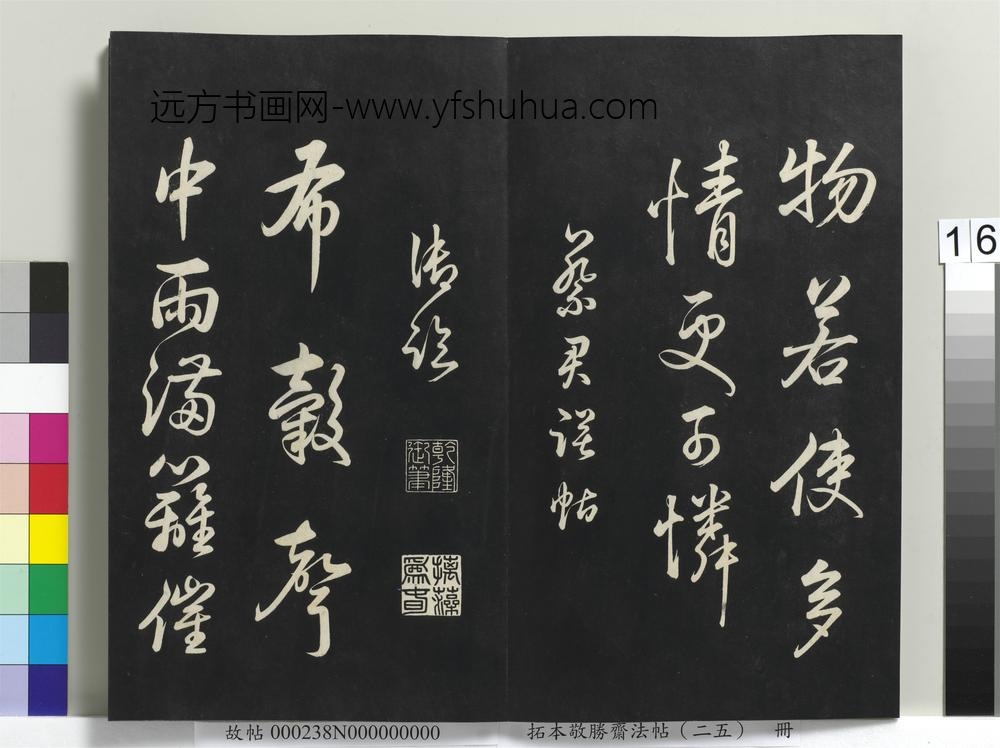 远方书画网-www.yfshuhua.com
物若使多
情更可憐
蔡君謨帖
御臨
乾隆御筆
摛藻為春
布穀聲
中雨滿籬催
16
故帖 000238N000000000
拓本敬勝齋法帖（二五） 冊